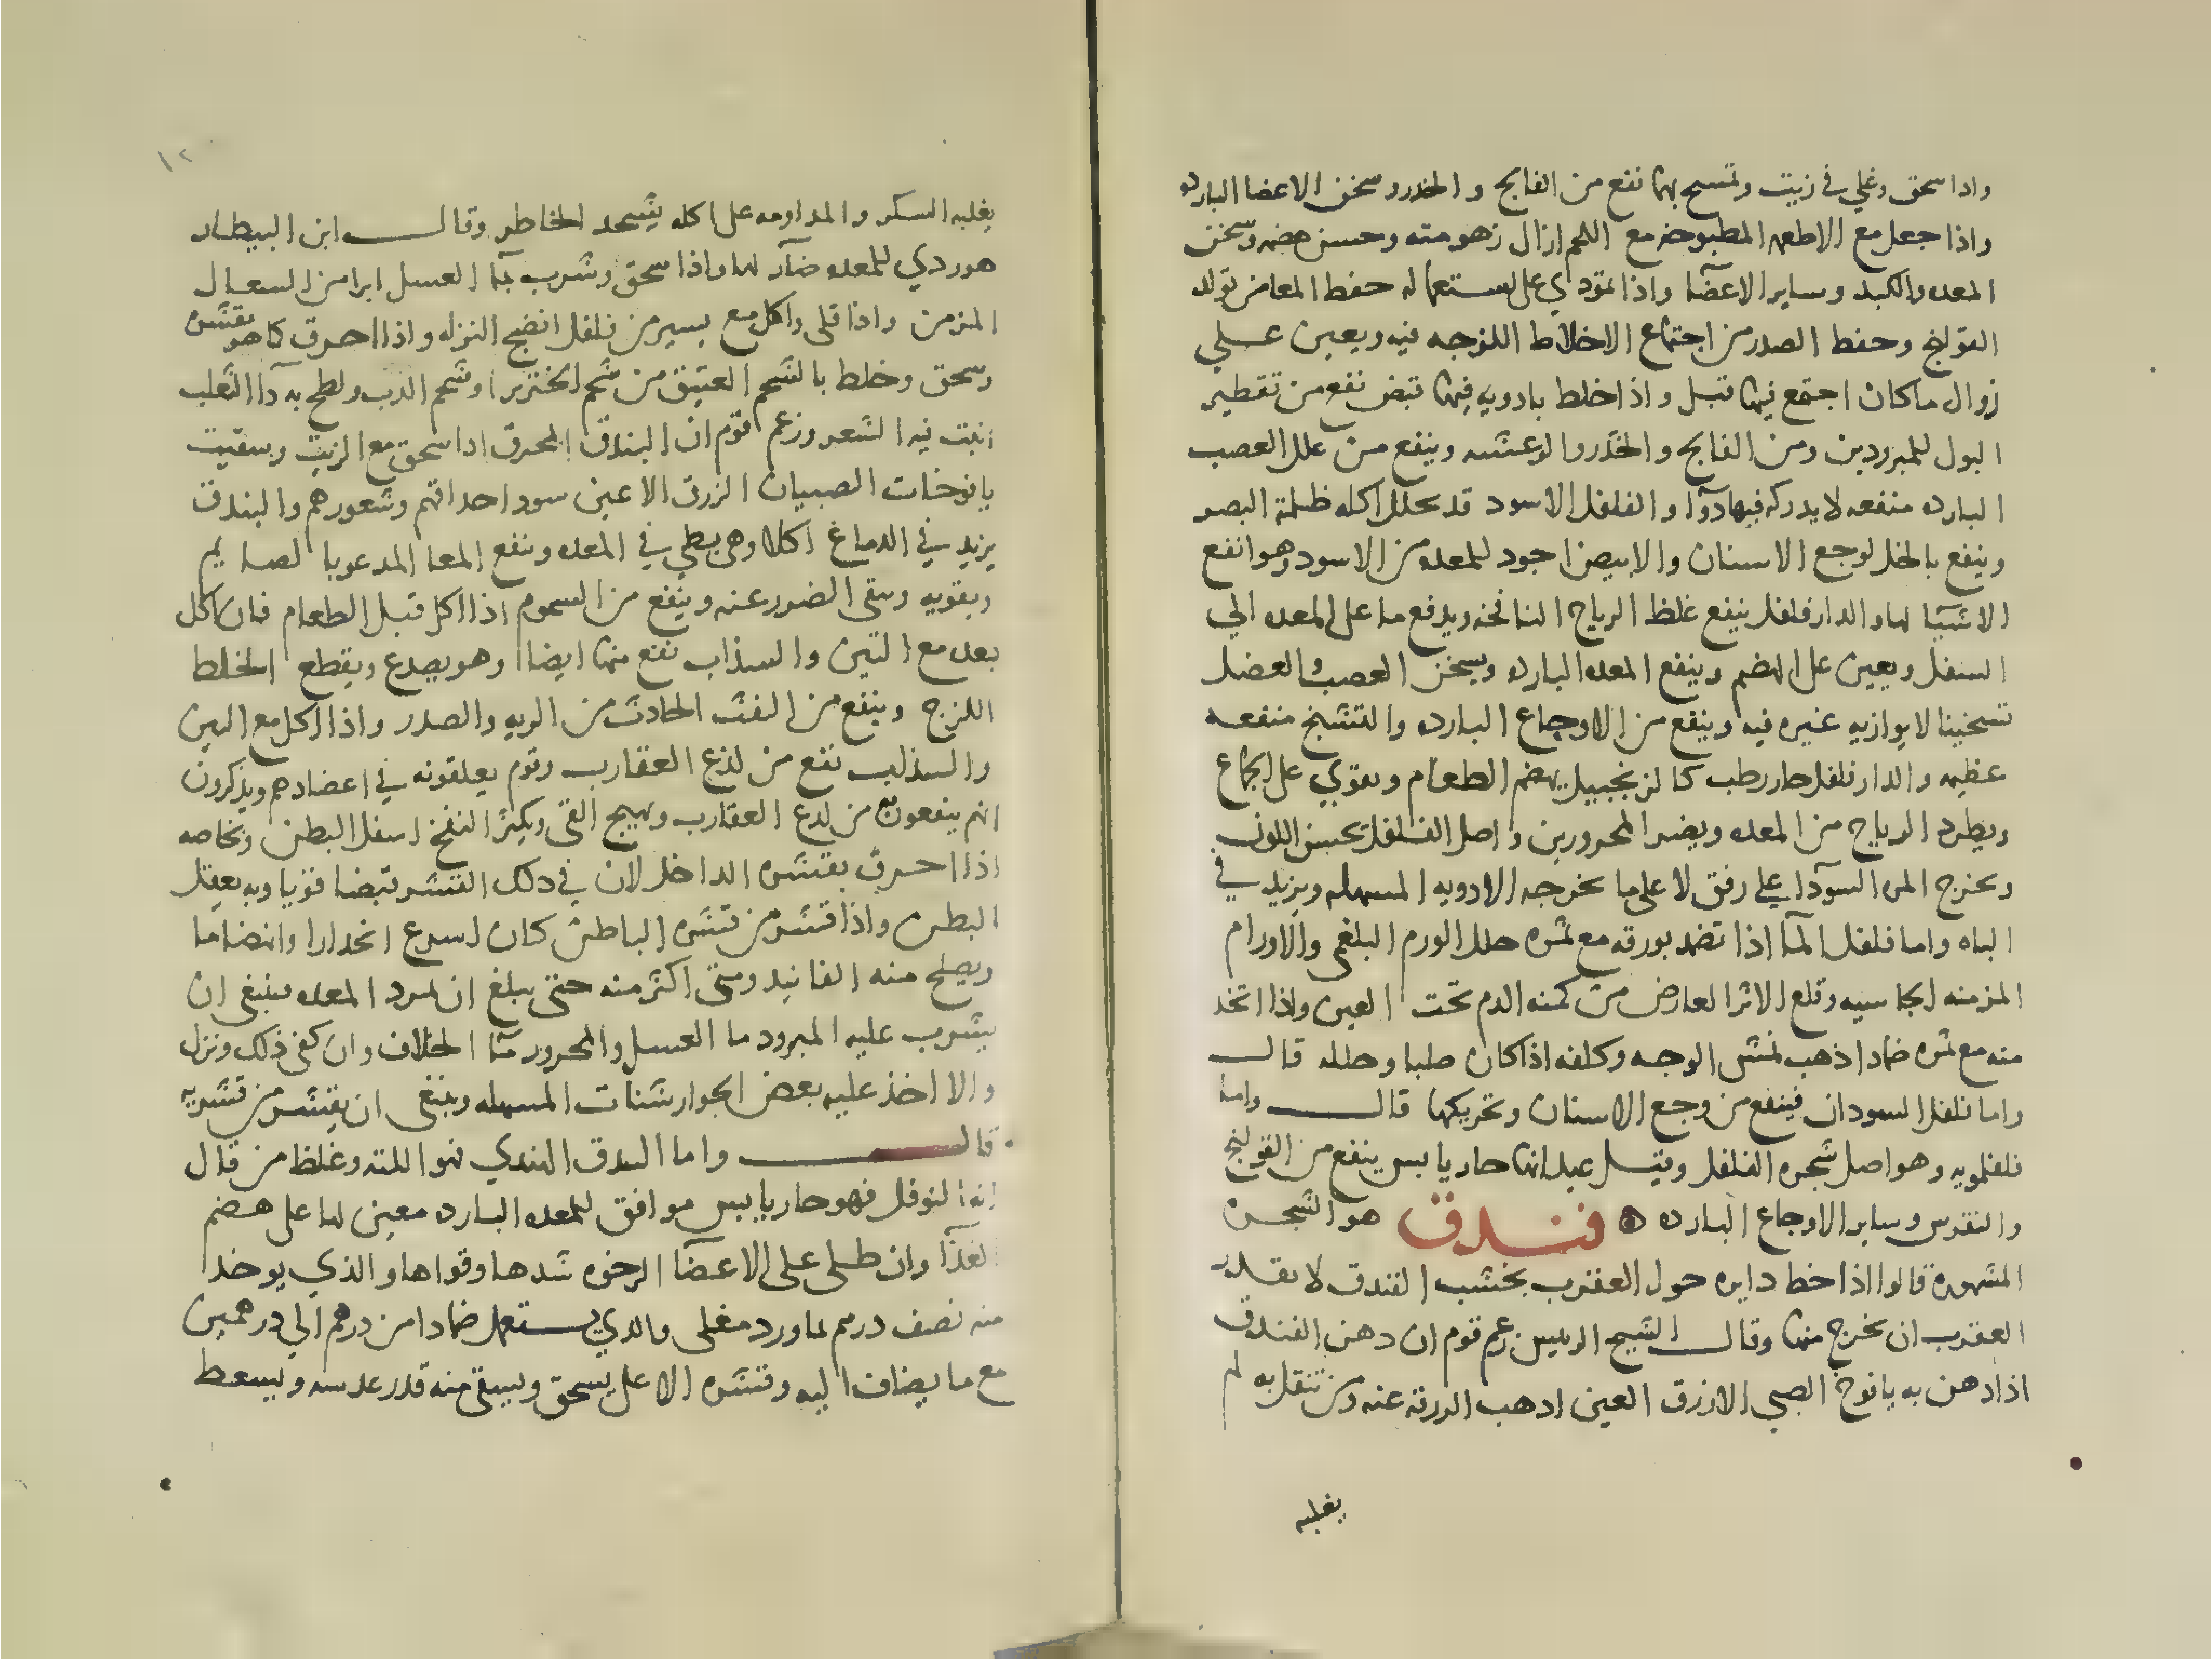 واذا سحق وغلي في زيت وتمسح بها نفع من الفالج والخدر وسخن الاعضا البارده
واذا جعل مع الاطعمه المطبوخه مع اللحم ازال زهومته وحسن هضمه وسخن
المعده والكبد وساير الاعضآ واذا تمودي على استعماله حفط المعا من تولد
القولنج وحفط الصدر من اجتماع الاخلاط اللزجه فيه ويعين علي
زوال ما كان اجتمع فيها قبل واذا خلط بادويه فيها قبض نفع من تقطير
البول للمبرودين ومن الفالج والخدر والرعشه وينفع من علل العصب
البارده منفعه لا يدركه فيها دوآ والفلفل الاسود قد يحلل اكله ظلمة البصر
وينفع بالخل لوجع الاسنان والابيض اجود للمعده من الاسود وهو انفع
الاشيآ لها والدارفلفل ينفع غلظ الرياح النافخه ويدفع ما على المعده الي
السفل ويعين على الهضم وينفع المعده البارده ويسخن العصب والعضل
تسخينا لا يوازيه غيره فيه وينفع من الاوجاع البارده والتشنج منفعه
عظيمه والدارفلفل حار رطب كالزنجبيل يهضم الطعام ويقوي على الجماع
ويطرد الرياح من المعده ويضر المحرورين واصل الفلفل يحسن اللون
ويخرج المره السوآدا علي رفق لا على ما يخرجه الادويه المسهله ويزيد في
الباه واما فلفل المآ اذا تضمد بورقه مع ثمره حلل الورم البلغمي والاورام
المزمنه الجاسيه وقلع الاثر العارض من كمنه الدم تحت العين واذا اتخد
منه مع ثمره ضمادا ذهب نمش الوجه وكلفه اذا كان صلبا وحلله قال
واما فلفل السودان فينفع من وجع الاسنان وتحريكها قال واما
فلفلمويه وهو اصل شجره الفلفل وقيل عيدانها حار يابس ينفع من القولنج
والنقرس وساير الاوجاع البارده فندق هو الشجره
المشهوره قالوا اذا خط دايره حول العقرب بخشب الفندق لا يقدر
العقرب ان يخرج منها وقال الشيخ الرييس زعم قوم ان دهن الفندق
اذا دهن به يافوخ الصبي الازرق العين ادهب الزرقه عنه ومن تنقل به لم
يغلبه
١٢
يغلبه السكر والمداومه على اكله يشحد الخاطر وقال ابن البيطار
هو ردي للمعده ضآر لها واذا سحق وشرب بمآ العسل ابرا من السعال
المزمن واذا قلي واكل مع يسير من فلفل انضج النزله واذا احرق كما هو بقشره
وسحق وخلط بالشحم العتيق من شحم الخنزير او شحم الدب ولطخ به دآ الثعلب
انبت فيه الشعر وزعم قوم ان البندق المحرق اذا سحق مع الزيت وسقيت
يافوخات الصبيان الزرق الاعين سود احداقهم وشعورهم والبندق
يزيد في الدماغ اكلا وهي بطي في المعده وينفع المعا المدعو بالصايم
ويقويه وينقي الضرر عنه وينفع من السموم اذا اكل قبل الطعام فان اكل
بعده مع التين والسذاب نفع منها ايضا وهو يصدع ويقطع الخلط
اللزج وينفع من النفث الحادث من الريه والصدر واذا اكل مع التين
والسذاب نفع من لذع العقارب وقوم يعلقونه في اعضادهم ويذكرون
انهم ينفعون به من لدغ العقارب ويهيج القي ويكثر النفخ اسفل البطن وبخاصه
اذا احرق بقشره الداخل لان في ذلك القشر قبضا قويا وبه يعقل
البطن واذا قشر من قشره الباطن كان اسرع انحدارا وانضاما
ويصلح منه الفانيد ومتى اكثر منه حتى يبلغ ان يبرد المعده ينبغي ان
يشرب عليه المبرود ما العسل والمحرور مآ الخلاف وان كفى ذلك ونزل
والا اخذ عليه بعض الجوارشنات المسهله وينبغي ان يقشر من قشريه
قال واما البندق الهندي فهو الرته وغلظ من قال
انه النوفل فهو حار يابس موافق للمعده البارده معين لها على هضم
الغذآ وان طلي على الاعضآ الرخوه شدها وقواها والذي يوخد
منه نصف درهم بماورد مغلي والذي يستعمل ضمادا من درهم الي درهمين
مع ما يضاف اليه وقشره الاعلى يسحق ويسقى منه قدر عدسه ويسعط